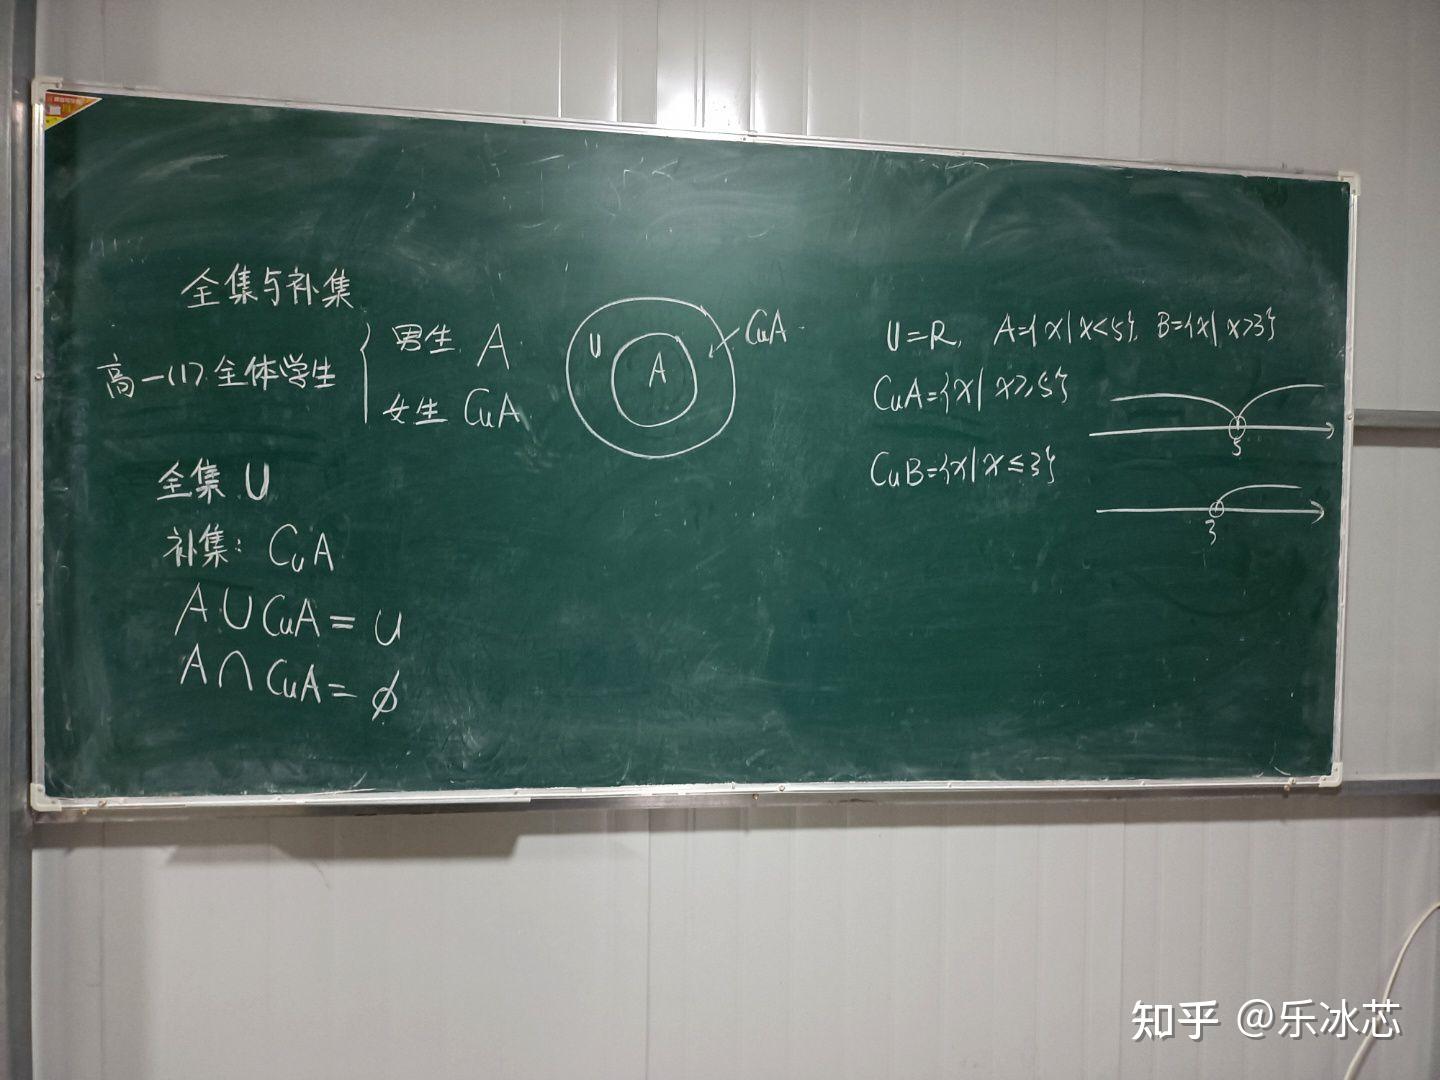 全集与补集
高一(1)全体学生
男生 A
女生 CuA
全集 U
补集: CuA
A∪CuA=U
A∩CuA=∅
U
A
CuA
U=R, A={x|x<5}, B={x|x>3}
CuA={x|x≥5}
5
CuB={x|x≤3}
3
知乎 @乐冰芯